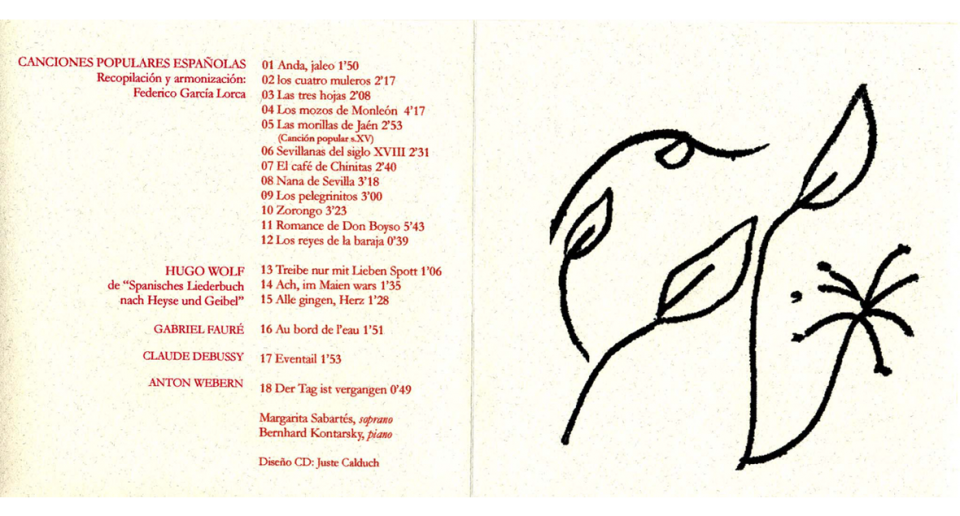 CANCIONES POPULARES ESPAÑOLAS
Recopilación y armonización:
Federico García Lorca
01 Anda, jaleo 1’50
02 los cuatro muleros 2’17
03 Las tres hojas 2’08
04 Los mozos de Monleón 4’17
05 Las morillas de Jaén 2’53
(Canción popular s.XV)
06 Sevillanas del siglo XVIII 2’31
07 El café de Chinitas 2’40
08 Nana de Sevilla 3’18
09 Los pelegrinitos 3’00
10 Zorongo 3’23
11 Romance de Don Boyso 5’43
12 Los reyes de la baraja 0’39
HUGO WOLF
de “Spanisches Liederbuch
nach Heyse und Geibel”
13 Treibe nur mit Lieben Spott 1’06
14 Ach, im Maien wars 1’35
15 Alle gingen, Herz 1’28
GABRIEL FAURÉ
16 Au bord de l’eau 1’51
CLAUDE DEBUSSY
17 Eventail 1’53
ANTON WEBERN
18 Der Tag ist vergangen 0’49
Margarita Sabartés, soprano
Bernhard Kontarsky, piano
Diseño CD: Juste Calduch